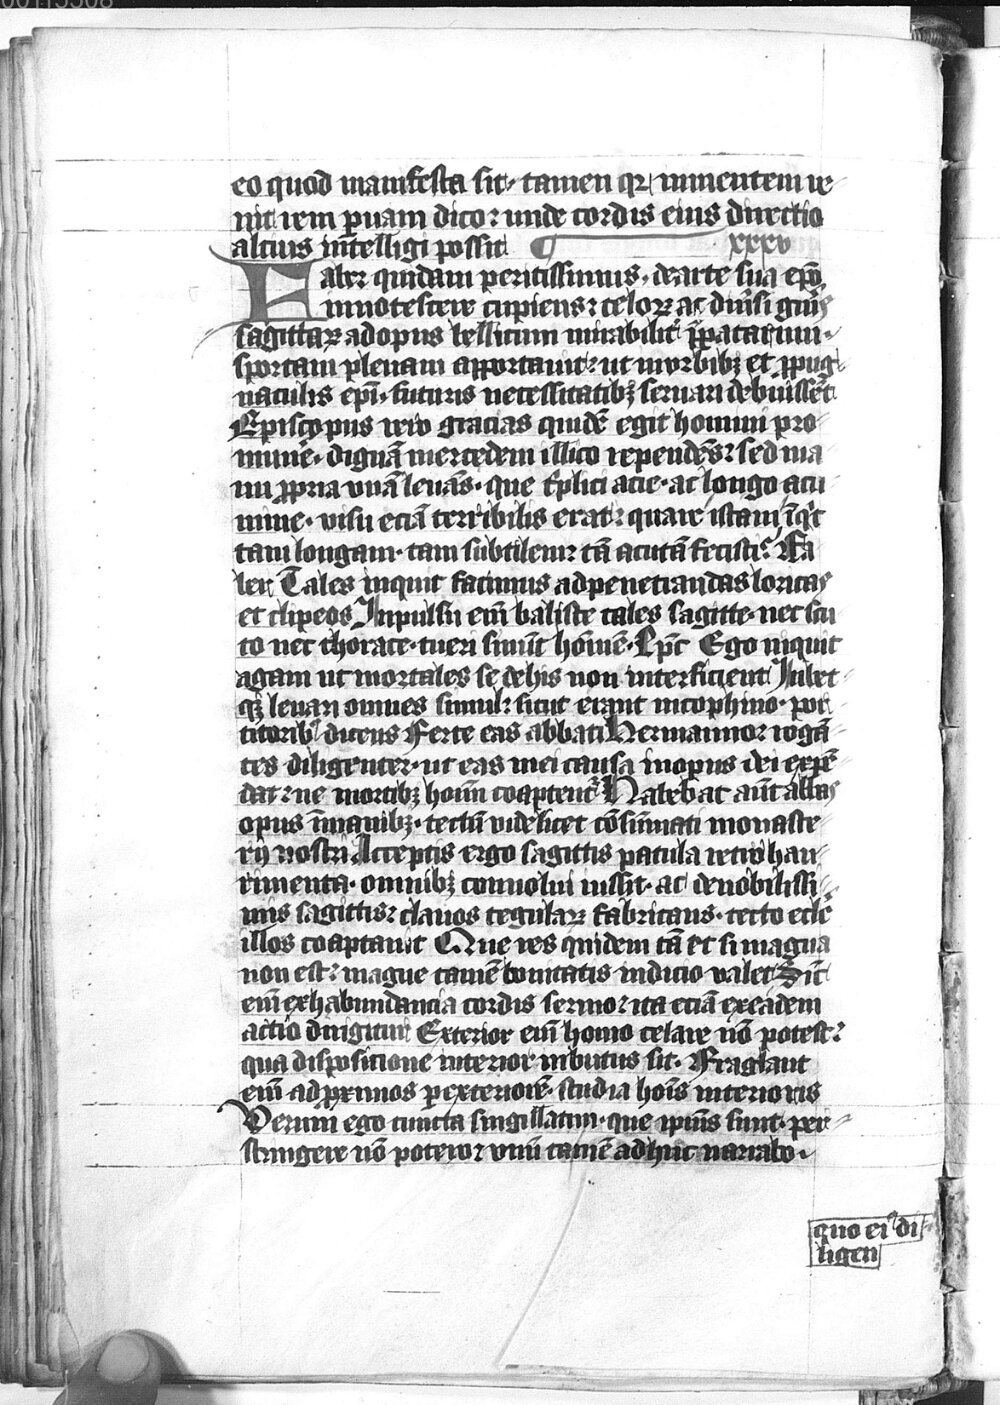 00113308
eo quod manifesta sit, tamen qꝛ in mentem ve-
nit rem ꝑuam dico: unde cordis eius directio
altius intelligi possit xxxv
Fabeꝛ quidam peritissimus, de arte sua ep̄o
innotescere cupiens: teloꝝ ac diuˀsi gnˀis
sagittaꝝ ad opus bellicum mirabilitˀ p̄paratarum,
sportam plenam apportauit: ut in vrbibꝫ et ꝓpug-
naculis ep̄i, futuris necessitatibꝫ seruari debuissēt
Episcopus vero gracias quidē egit homini pro
munē, dignā mercedem illico rependēs: sed ma
nu ꝓpria vnā leuās, que tˀplici acie, ac longo acu
mine, visu eciā terribilis erat: quare istam īqˀt
tam longam, tam subtilem: tā acutā fecistiˀ Fa
ber Tales inquit facimus ad penetrandas loricas
et clipeos Inpulsu em̄ baliste tales sagitte, nec scu
to nec thorace, tueri sinūt homīē, Ep̄c Ego inquit
agam ut mortales se de his non interficient Iubet
qꝫ leuari omnes simul: sicut erant in cophino, por-
titoribˀ dicens Ferte eas abbati Hermanno: rogā
tes diligenter, ut eas mei causa in opus dei expē
dat: ne mortibꝫ hoīm coaptentˀ Habebat aūt abbas
opus ī manibꝫ, tectū videlicet cōsūmati monaste
rij nostri Acceptis ergo sagittis patula retro hau-
rimenta, omnibꝫ conuolui iussit, ac de nobilissi-
mis sagittis: clauos tegulaꝝ fabricans, tecto ecl̄e
illos coaptauit Que res quidem tā et si magna
non est: magne tamē bonitatis indicio valet Sic̄
em̄ ex habundancia cordis sermo: ita eciā ex eadem
actio dirigitur Exterior em̄ homo celare nō potest:
qua disposicione interior inbutus sit, Fraglant
em̄ ad pximos ꝑ exteriorē, studia hoīs interioris
Verum ego cuncta singillatim, que ipīus sunt, per-
stringere nō potero: vnū tamē adhuc narrabo,
quo eiˀ di-
ligen